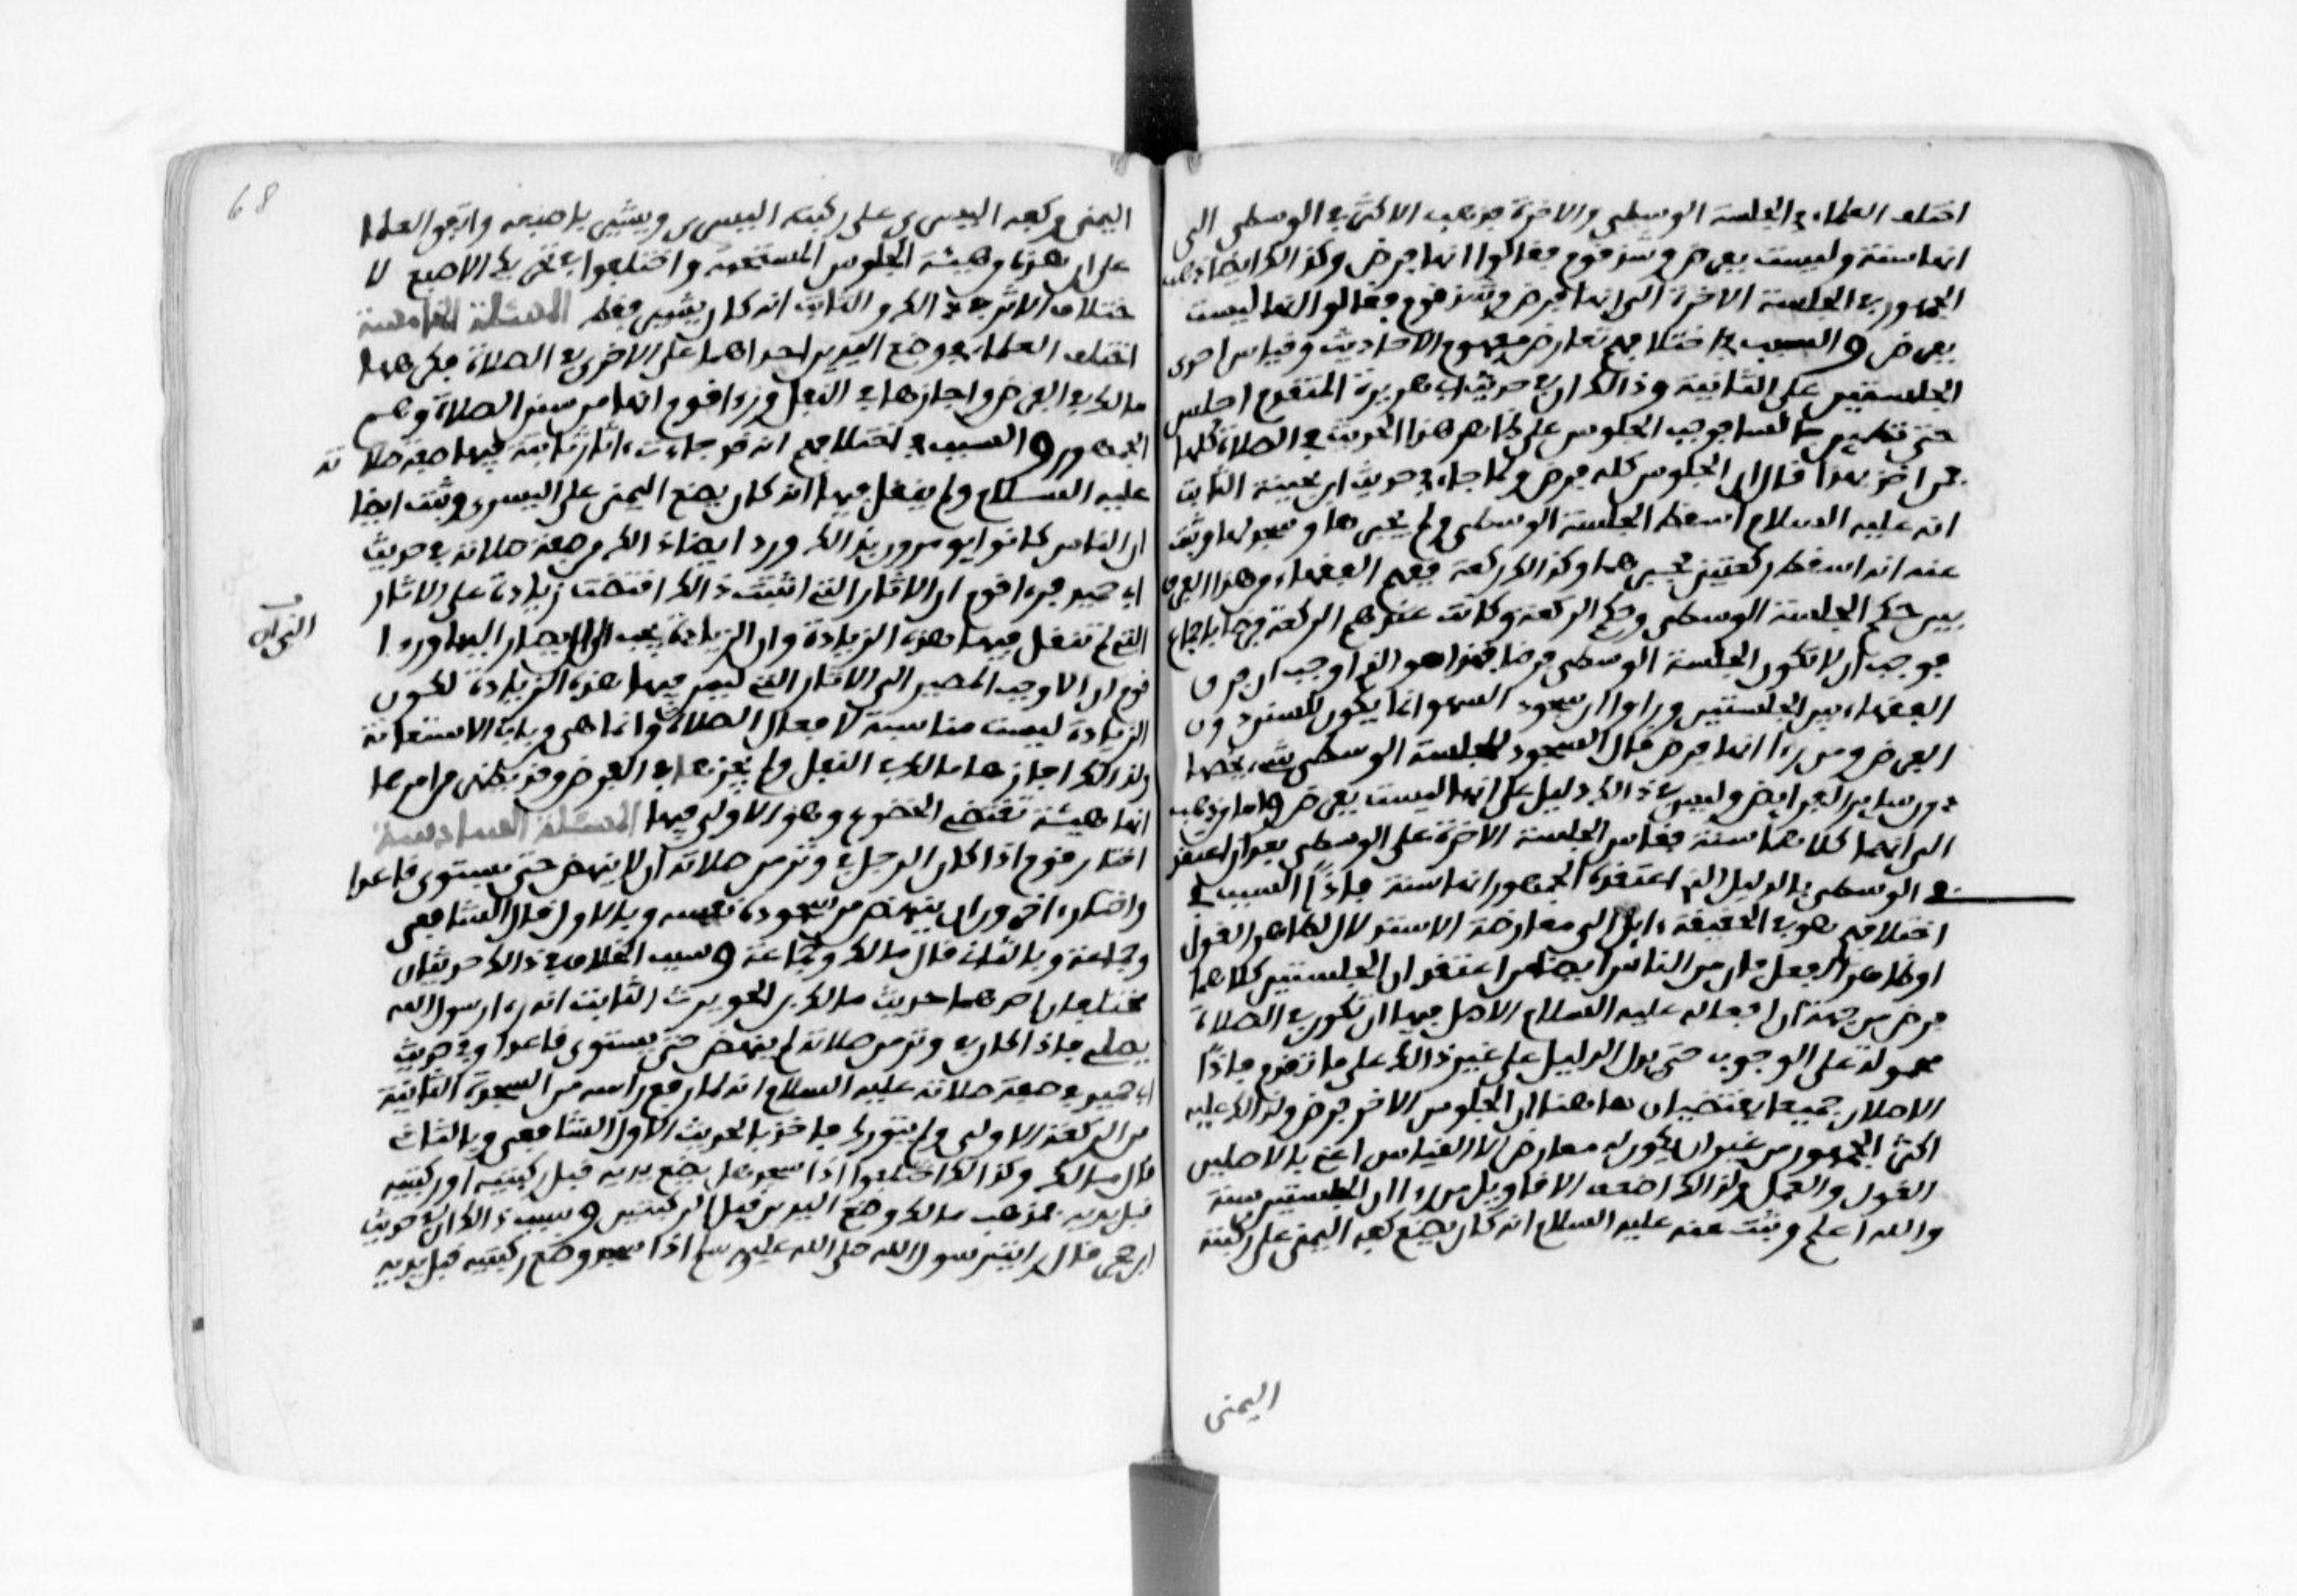 اختلف العلماء في الجلسة الوسطى والاخرة فذهب الاكثر في الوسطى الى
انها سنة وليست بفرض وشذ قوم فقالوا انها فرض وكذالك ايضا ذهب
الجمهور في الجلسة الاخرة الى انها فرض وشذ قوم فقالوا انها ليست
بفرض والسبب في اختلافهم تعارض مفهوم الاحاديث وقياس احدى
الجلستين على الثانية وذالك ان في حديث ابي هريرة المتقدم اجلس
حتى تطمئن جالسا فوجب الجلوس على ظاهر هذا الحديث في الصلاة كلها
فمن اخذ بهذا قال ان الجلوس كله فرض ولما جاء في حديث ابن بحينة الثابت
انه عليه السلام اسقط الجلسة الوسطى ولم يجبرها وسجد لها وثبت
عنه انه اسقط ركعتين فجبرهما وكذالك ركعة ففهم الفقهاء من هذا الفرق
بين حكم الجلسة الوسطى وحكم الركعة وكانت عندهم الركعة فرضا باجماع
فوجب ان لا تكون الجلسة الوسطى فرضا فهذا هو الذي اوجب ان فرق
الفقهاء بين الجلستين وراوا ان سجود السهو انما يكون للسنن دون
الفرض ومن رءا انها فرض قال السجود للجلسة الوسطى شيء يخصها
دون ساير الفرايض وليس في ذالك دليل على انها ليست بفرض واما من ذهب
الى انهما كلاهما سنة فقاس الجلسة الاخرة على الوسطى بعد ان اعتقد
في الوسطى بالدليل الذي اعتقده الجمهور انها سنة فاذًا السبب في
اختلافهم هو في الحقيقة ءايل الى معارضة الاستدلال لظاهر القول
او ظاهر الفعل فان من الناس ايضا من اعتقد ان الجلستين كلاهما
فرض من جهة ان افعاله عليه السلام الاصل فيها ان تكون في الصلاة
محمولة على الوجوب حتى يدل الدليل على غير ذالك على ما تقدم فاذًا
الاصلان جميعا يقتضيان هاهنا ان الجلوس الاخر فرض ولذالك عليه
اكثر الجمهور من غير ان يكون له معارض الا القياس اعني بالاصلين
القول والعمل ولذالك اضعف الاقاويل من رءا ان الجلستين سنة
والله اعلم وثبت عنه عليه السلام انه كان يضع كفه اليمنى على ركبته
اليمنى
68
اليمنى وكفه اليسرى على ركبته اليسرى ويشير باصبعه واتفق العلما
على ان هذه هيئة الجلوس المستحبة واختلفوا في تحريك الاصبع لا
ختلاف الاثر في ذالك والثابت انه كان يشير فقط المسئلة الخامسة
اختلف العلماء في وضع اليدين احداهما على الاخرى في الصلاة فكرهها
مالك في الفرض واجازها في النفل ورءا قوم انها من سنن الصلاة وهم
الجمهور والسبب في اختلافهم انه قد جاءت ءاثار ثابتة فيها صفة صلاته
عليه السلام ولم ينقل فيها انه كان يضع اليمنى على اليسرى وثبت ايضا
ان الناس كانوا يومرون بذالك وورد ايضا ذالك من صفة صلاته في حديث
ابي حميد فرءا قوم ان الاثار التي اثبتت ذالك اقتضت زيادة على الاثار
التي لم تنقل فيها هذه الزيادة وان الزيادة يجب ان يصار اليها ورءا
قوم ان الاوجب المصير الى الاثار التي ليس فيها هذه الزيادة لكون
الزيادة ليست مناسبة لافعال الصلاة وانما هي من باب الاستعانة
ولذالك اجازها مالك في النفل ولم يجزها في الفرض وقد يظهر من امرها
انها هيئة تقتضي الخضوع وهو الاولى فيها المسئلة السادسة
اختار قوم اذا كان الرجل في وتر من صلاته ان لا ينهض حتى يستوي قاعدا
واختار ءاخرون ان ينهض من سجوده نفسه وبالاول قال الشافعي
وجماعة وبالثاني قال مالك وجماعة وسبب الخلاف في ذالك حديثان
مختلفان احدهما حديث مالك بن الحويرث الثابت انه رءا رسول الله
يصلي فاذا كان في وتر من صلاته لم ينهض حتى يستوي قاعدا وفي حديث
ابي حميد في صفة صلاته عليه السلام انه لما رفع راسه من السجدة الثانية
من الركعة الاولى قام ولم يتورك فاخذ بالحديث الاول الشافعي وبالثاني
قال مالك وكذالك اختلفوا اذا سجد هل يضع يديه قبل ركبتيه او ركبتيه
قبل يديه فمذهب مالك وضع اليدين قبل الركبتين وسبب ذالك ان في حديث
ابن حجر قال رايت رسول الله صلى الله عليه وسلم اذا سجد وضع ركبتيه قبل يديه